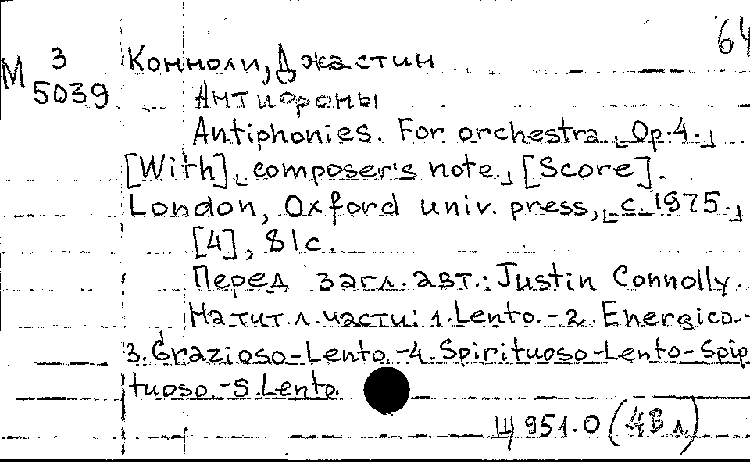 64
М 3 Конноли, Джастин
5039 Антифоны
Antiphonies. For orchestra. Op.4.
[With] composer's note, [Score].
London, Oxford univ. press, c. 1975.
[4], 81с.
Перед загл. авт.: Justin Connolly.
На тит л. части: 1. Lento. - 2. Energico. -
3. Grazioso-Lento. - 4. Spirituoso-Lento-Spip
tuoso. - 5. Lento.
951.0